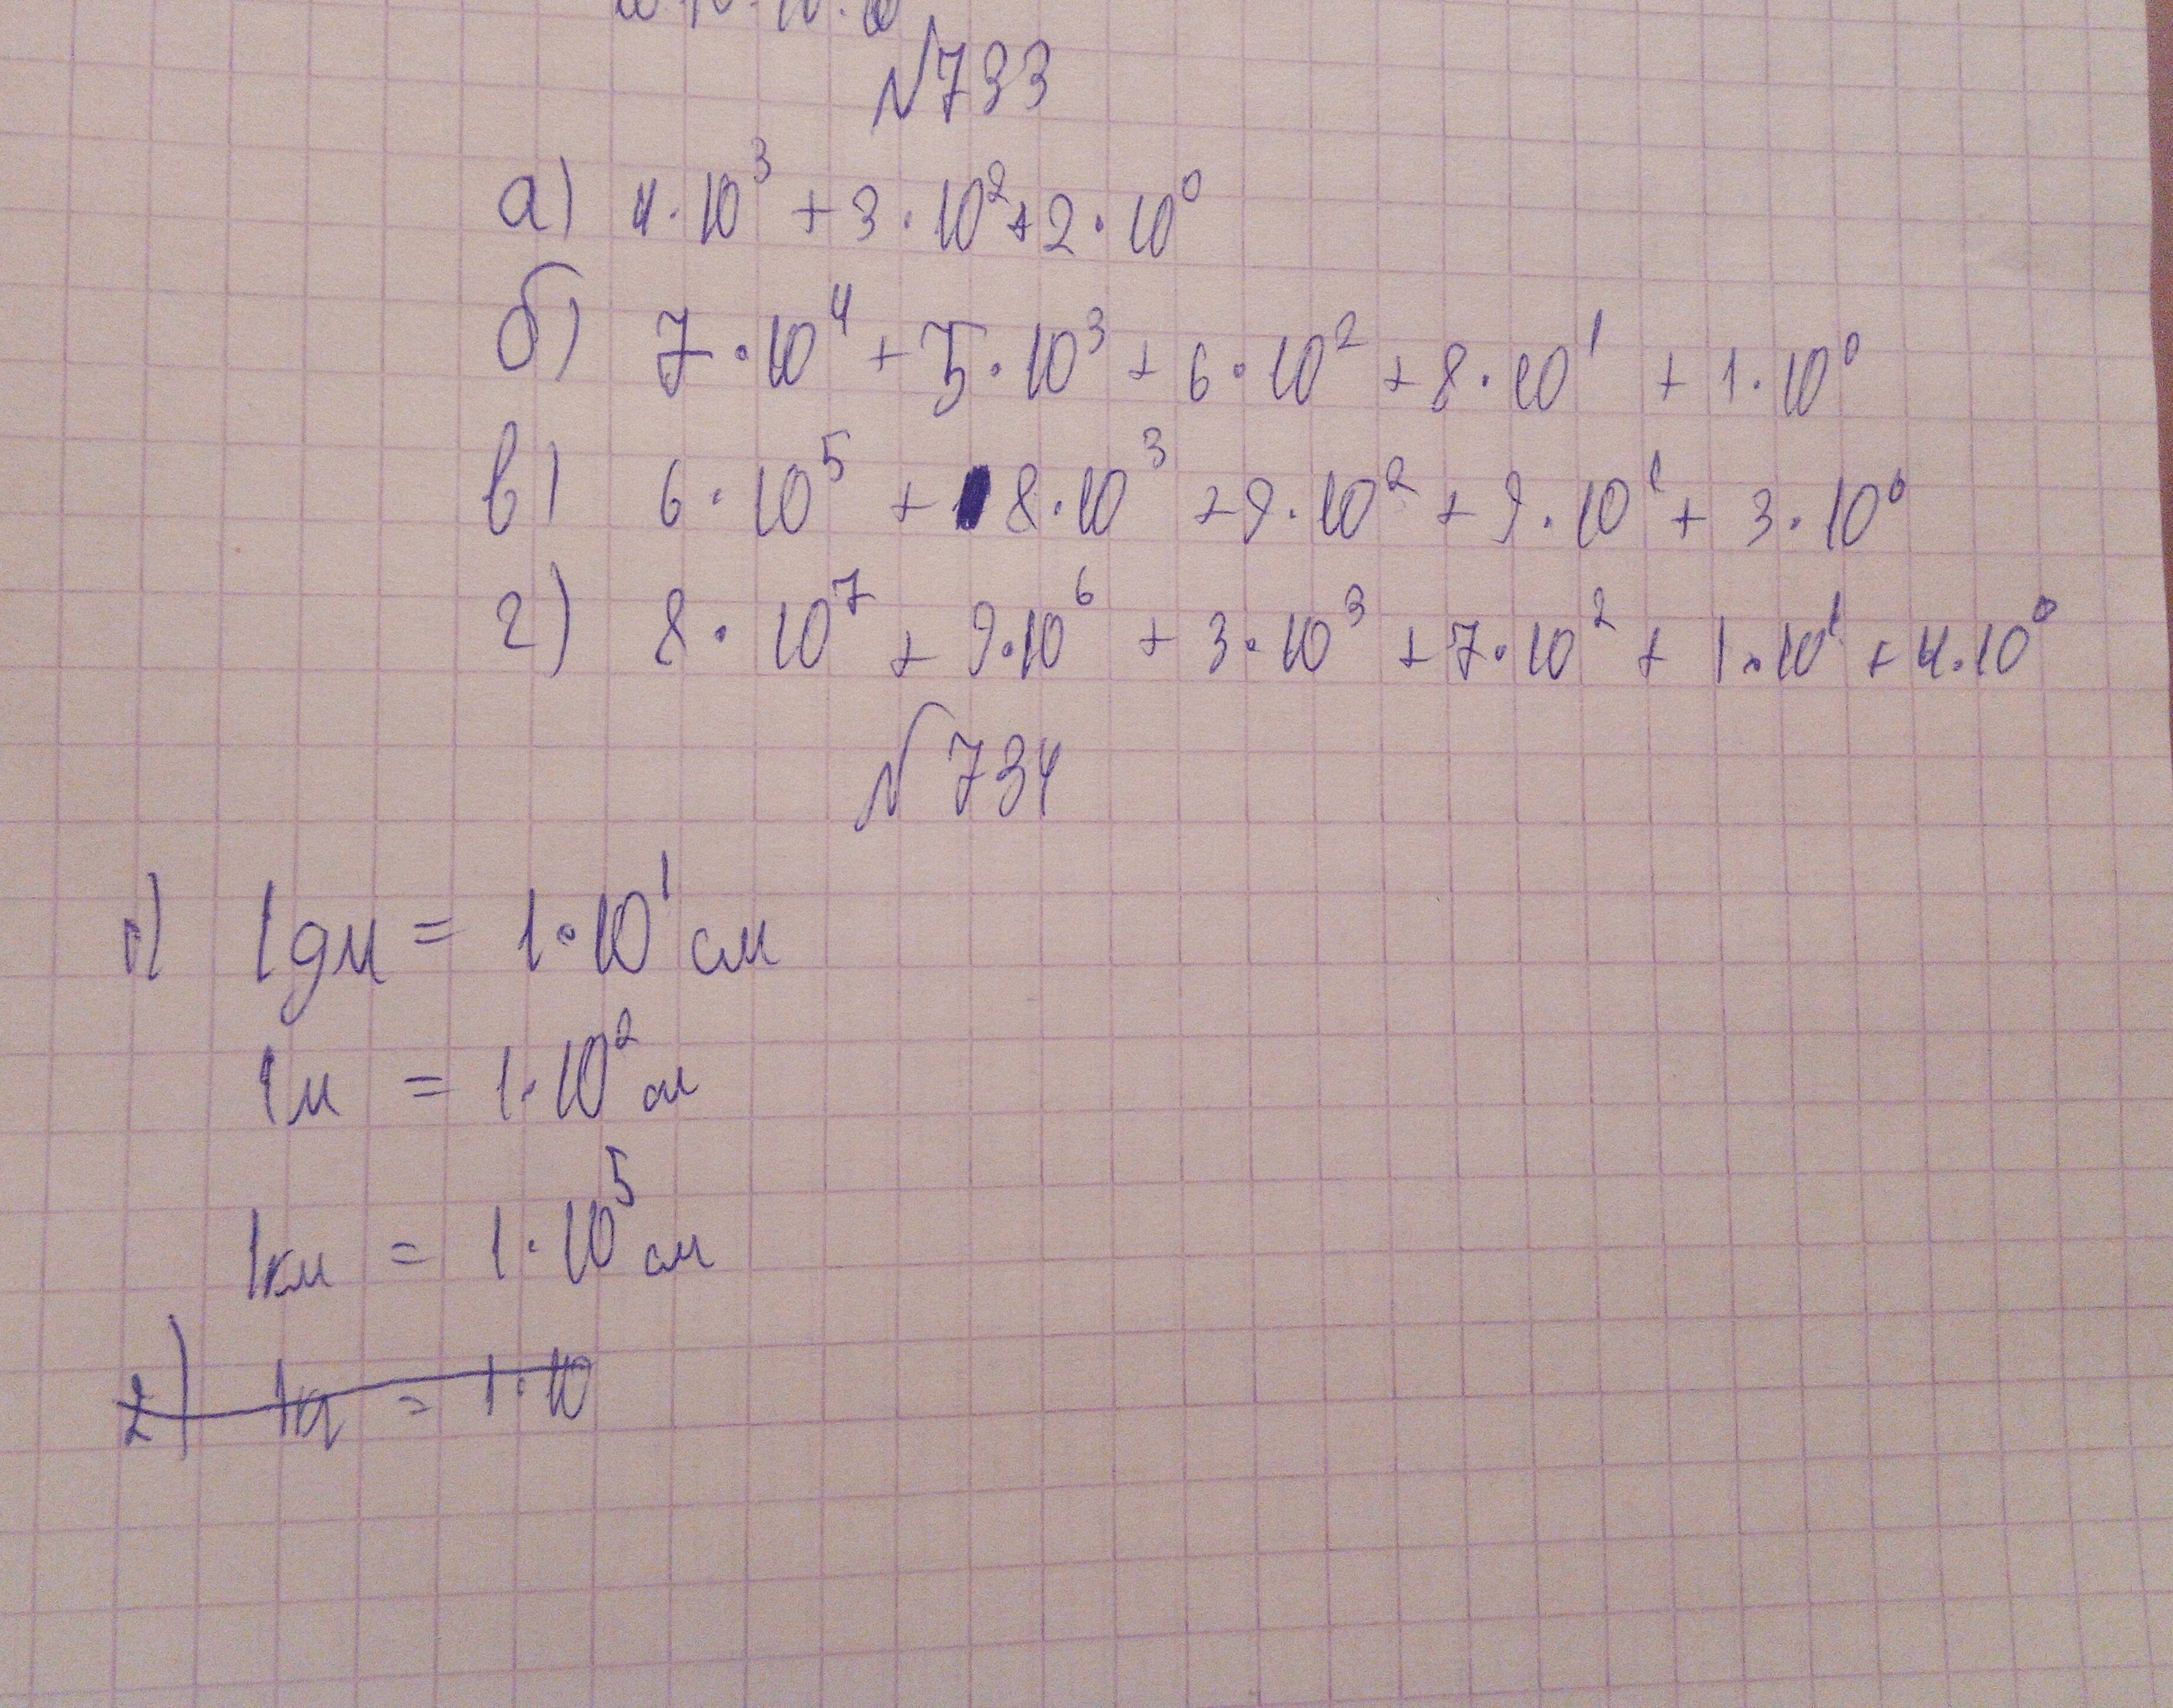 №733
а) 4·10³ + 3·10² + 2·10⁰
б) 7·10⁴ + 5·10³ + 6·10² + 8·10¹ + 1·10⁰
в) 6·10⁵ + 8·10³ + 9·10² + 9·10¹ + 3·10⁰
г) 8·10⁷ + 9·10⁶ + 3·10³ + 7·10² + 1·10¹ + 4·10⁰
№734
1) 1дм = 1·10¹ см
1м = 1·10² см
1км = 1·10⁵ см
2) 1кг = 1·10